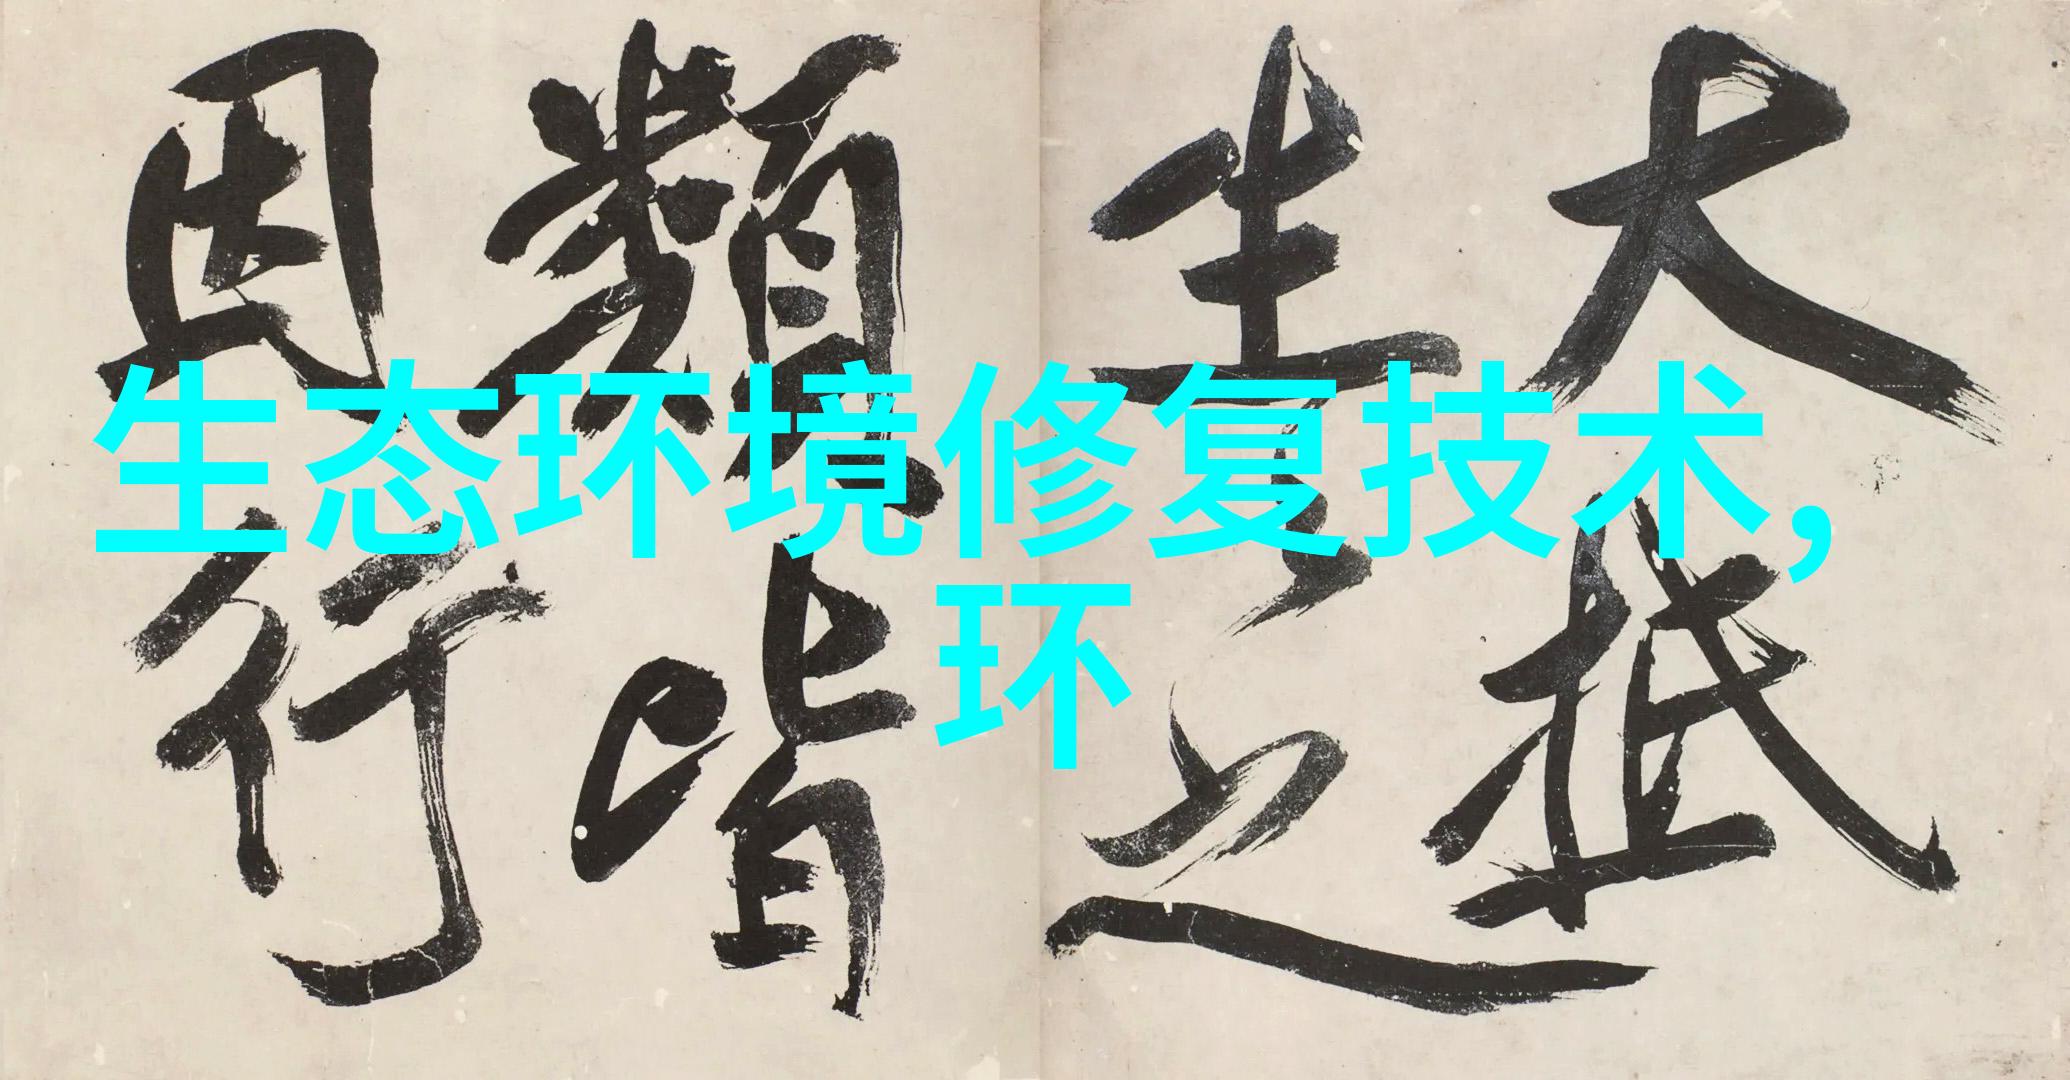 生态环境修复技术,
环
大抵
生之
類皆
因行